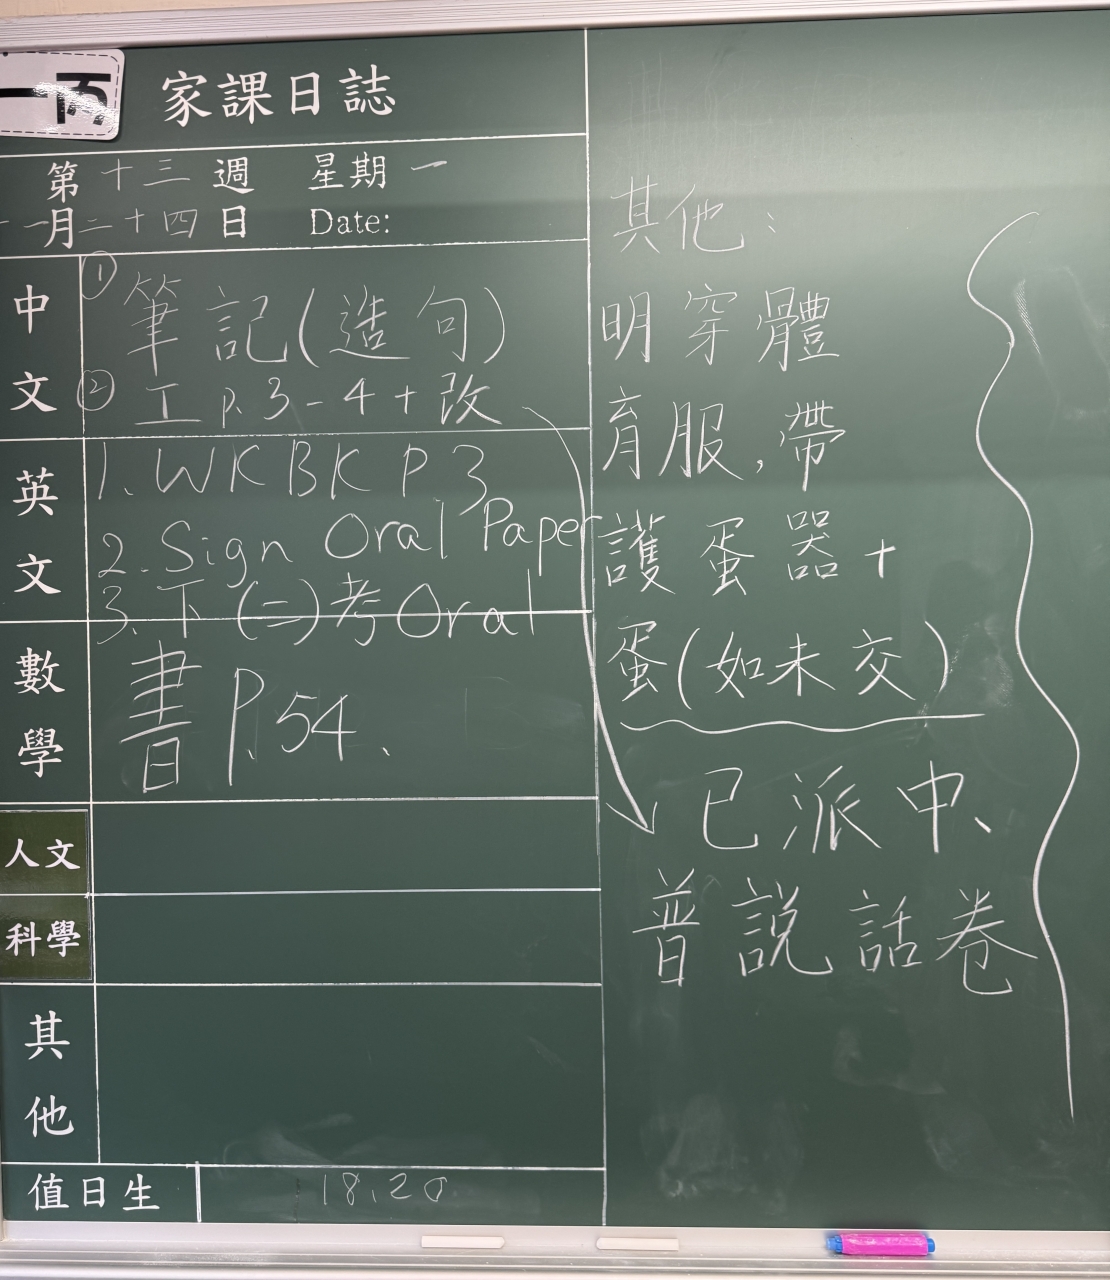 一丙
家課日誌
第十三週 星期一
十一月二十四日 Date:
中文
① 筆記(造句)
② 工 p.3-4+改
英文
1. WKBK P.3
2. Sign Oral Paper
3. 下(二)考Oral
數學
書 P.54.
人文
科學
其他
值日生
18.20
其他:
明穿體
育服,帶
護蛋器+
蛋(如未交)
已派中、
普說話卷